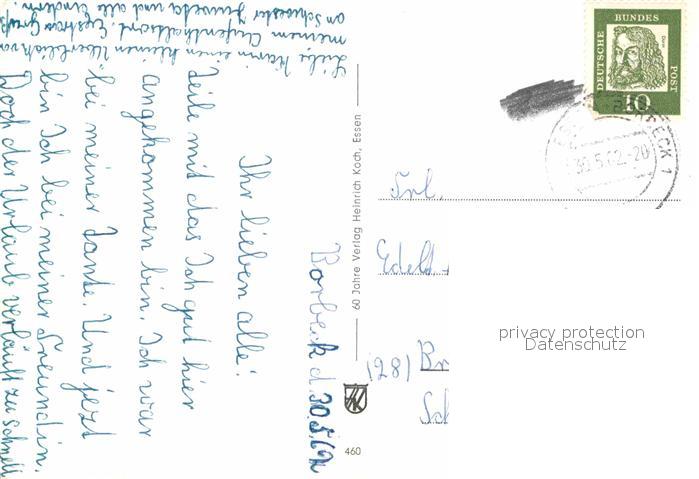 Borbeck d. 30.5.62
Ihr lieben alle!
Teile mit das Ich gut hier
angekommen bin. Ich war
bei meiner Tante. Und jezt
bin Ich bei meiner Freundin.
Doch der Urlaub verläuft zu schnell
Liebe Karin einen kleinen Überblick von
meinem Aufenthaltsort. Extra Gruß
an Schwester und alle andern.
60 Jahre Verlag Heinrich Koch, Essen
HK
460
DEUTSCHE
BUNDES
POST
Dürer
10
30.5.62-20
1
Frl.
Edelt
(28) Br
Sch
privacy protection
Datenschutz